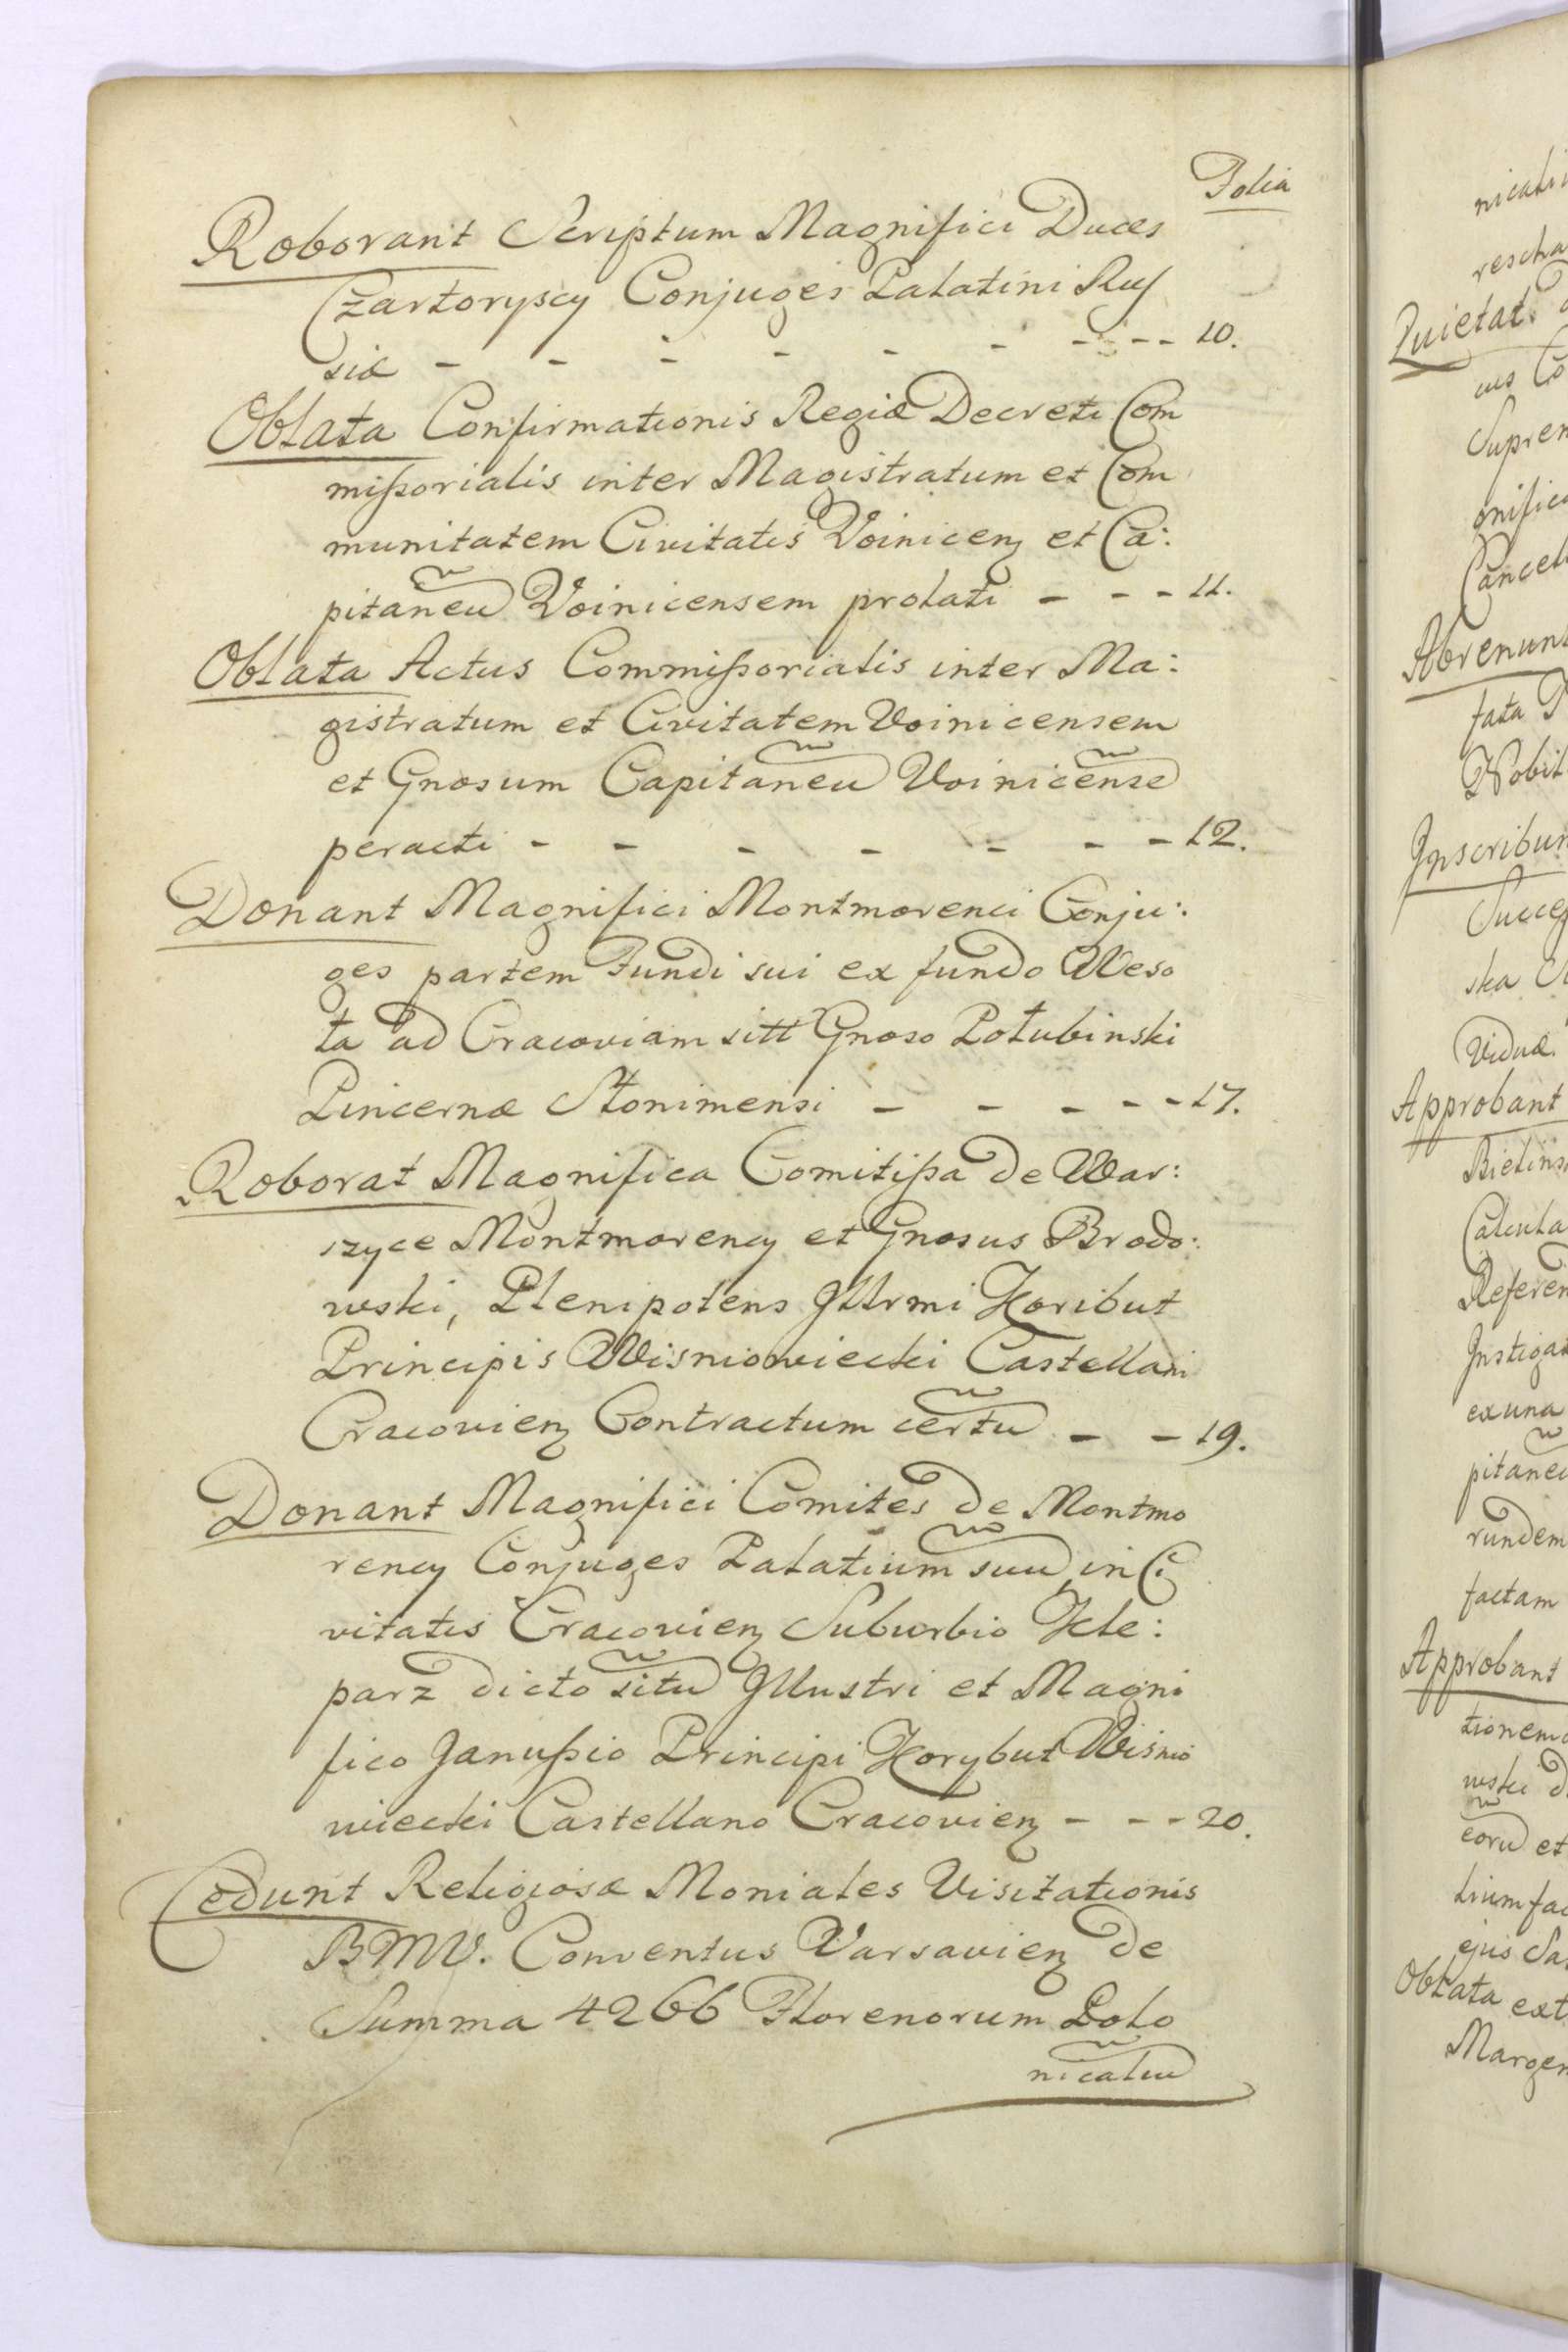 Folia
Roborant Scriptum Magnifici Duces
Czartoryscy Conjuges Palatini Rus
siæ - - - - - - - - - 10.
Oblata Confirmationis Regiæ Decreti Com
mißorialis inter Magistratum et Com
munitatem Civitatis Voinicenz et Ca:
pitaneũ Voinicensem prolati - - - 11.
Oblata Actus Commißorialis inter Ma:
gistratum et Civitatem Voinicensem
et Gnosum Capitaneũ Voinicensẽ
peracti - - - - - - - 12.
Donant Magnifici Montmorenci Conju:
ges partem Fundi sui ex fundo Weso
ła ad Cracoviam sitt Gnoso Połubinski
Pincernæ Słonimensi - - - - - 17.
Roborat Magnifica Comitißa de War:
szyce Montmorency et Gnosus Brodo:
wski, Plenipotens Illrmi Koribut
Principis Wisniowiecki Castellani
Cracovienz Contractum certũ - - 19.
Donant Magnifici Comites de Montmo
rency Conjuges Palatium suũ in Ci
vitatis Cracovienz Suburbio Kle:
parz dicto sitũ Illustri et Magni
fico Janußio Principi Korybut Wisnio
wiecki Castellano Cracovienz - - - 20.
Cedunt Religiosæ Moniales Visitationis
BMV. Conventus Varsavienz de
Summa 4266 Florenorum Polo
nicaliũ
nicali
rescha
Quietat.
Suprem
gnific
Cancell
Abrenunt
fata
Nobil
Inscribun
Succeß
ska
Viduæ
Approbant
Bielins
Calcula
Referen
Instigat
ex una
pitaneũ
rundem
factam
Approbant
tionem
wski
eorũ et
lium fac
ejus Sa
Oblata ext
Margen